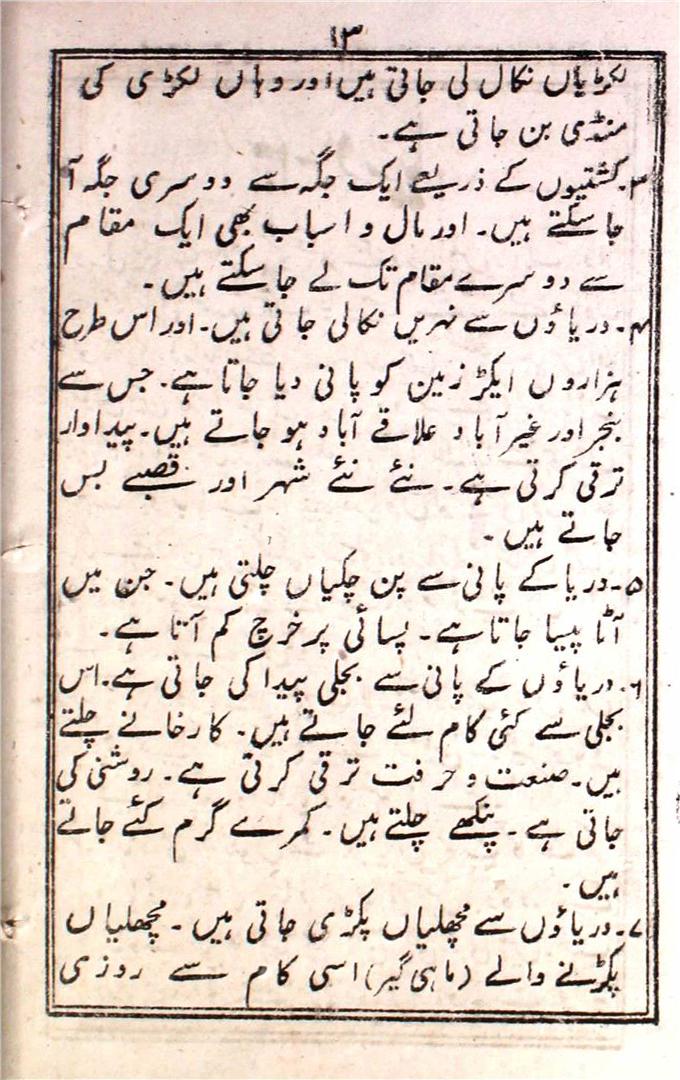 ۱۳
لکڑیاں نکال لی جاتی ہیں اور وہاں لکڑی کی
منڈی بن جاتی ہے۔
۳۔ کشتیوں کے ذریعے ایک جگہ سے دوسری جگہ آ
جا سکتے ہیں۔ اور مال و اسباب بھی ایک مقام
سے دوسرے مقام تک لے جا سکتے ہیں۔
۴۔ دریاؤں سے نہریں نکالی جاتی ہیں۔ اور اس طرح
ہزاروں ایکڑ زمین کو پانی دیا جاتا ہے۔ جس سے
بنجر اور غیر آباد علاقے آباد ہو جاتے ہیں۔ پیداوار
ترقی کرتی ہے۔ نئے نئے شہر اور قصبے بس
جاتے ہیں۔
۵۔ دریا کے پانی سے پن چکیاں چلتی ہیں۔ جن میں
آٹا پیسا جاتا ہے۔ پسائی پر خرچ کم آتا ہے۔
۶۔ دریاؤں کے پانی سے بجلی پیدا کی جاتی ہے۔ اس
بجلی سے کئی کام لئے جاتے ہیں۔ کارخانے چلتے
ہیں۔ صنعت و حرفت ترقی کرتی ہے۔ روشنی کی
جاتی ہے۔ پنکھے چلتے ہیں۔ کمرے گرم کئے جاتے
ہیں۔
۷۔ دریاؤں سے مچھلیاں پکڑی جاتی ہیں۔ مچھلیاں
پکڑنے والے (ماہی گیر) اسی کام سے روزی